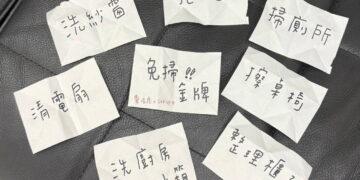 洗紗窗
掃廁所
免掃!!
金牌
擦桌椅
清電扇
洗廚房
整理櫃